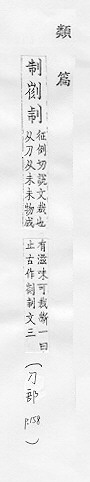 類篇
制𠛐𠜄
征例切說文裁也
从刀从未未物成
有滋味可裁斷一曰
止古作𠛐𠜄制文三
(刀部 p.158)